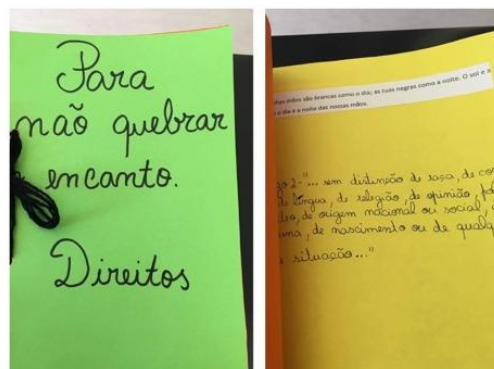 Para
não quebrar
encanto.
Direitos
mãos são brancas como o dia; as tuas negras como a noite. O sol e a
o dia e a noite das nossas mãos.
2-"... sem distinção de raça, de
de língua, de religião, de opinião,
de origem nacional ou social,
, de nascimento ou de
situação..."